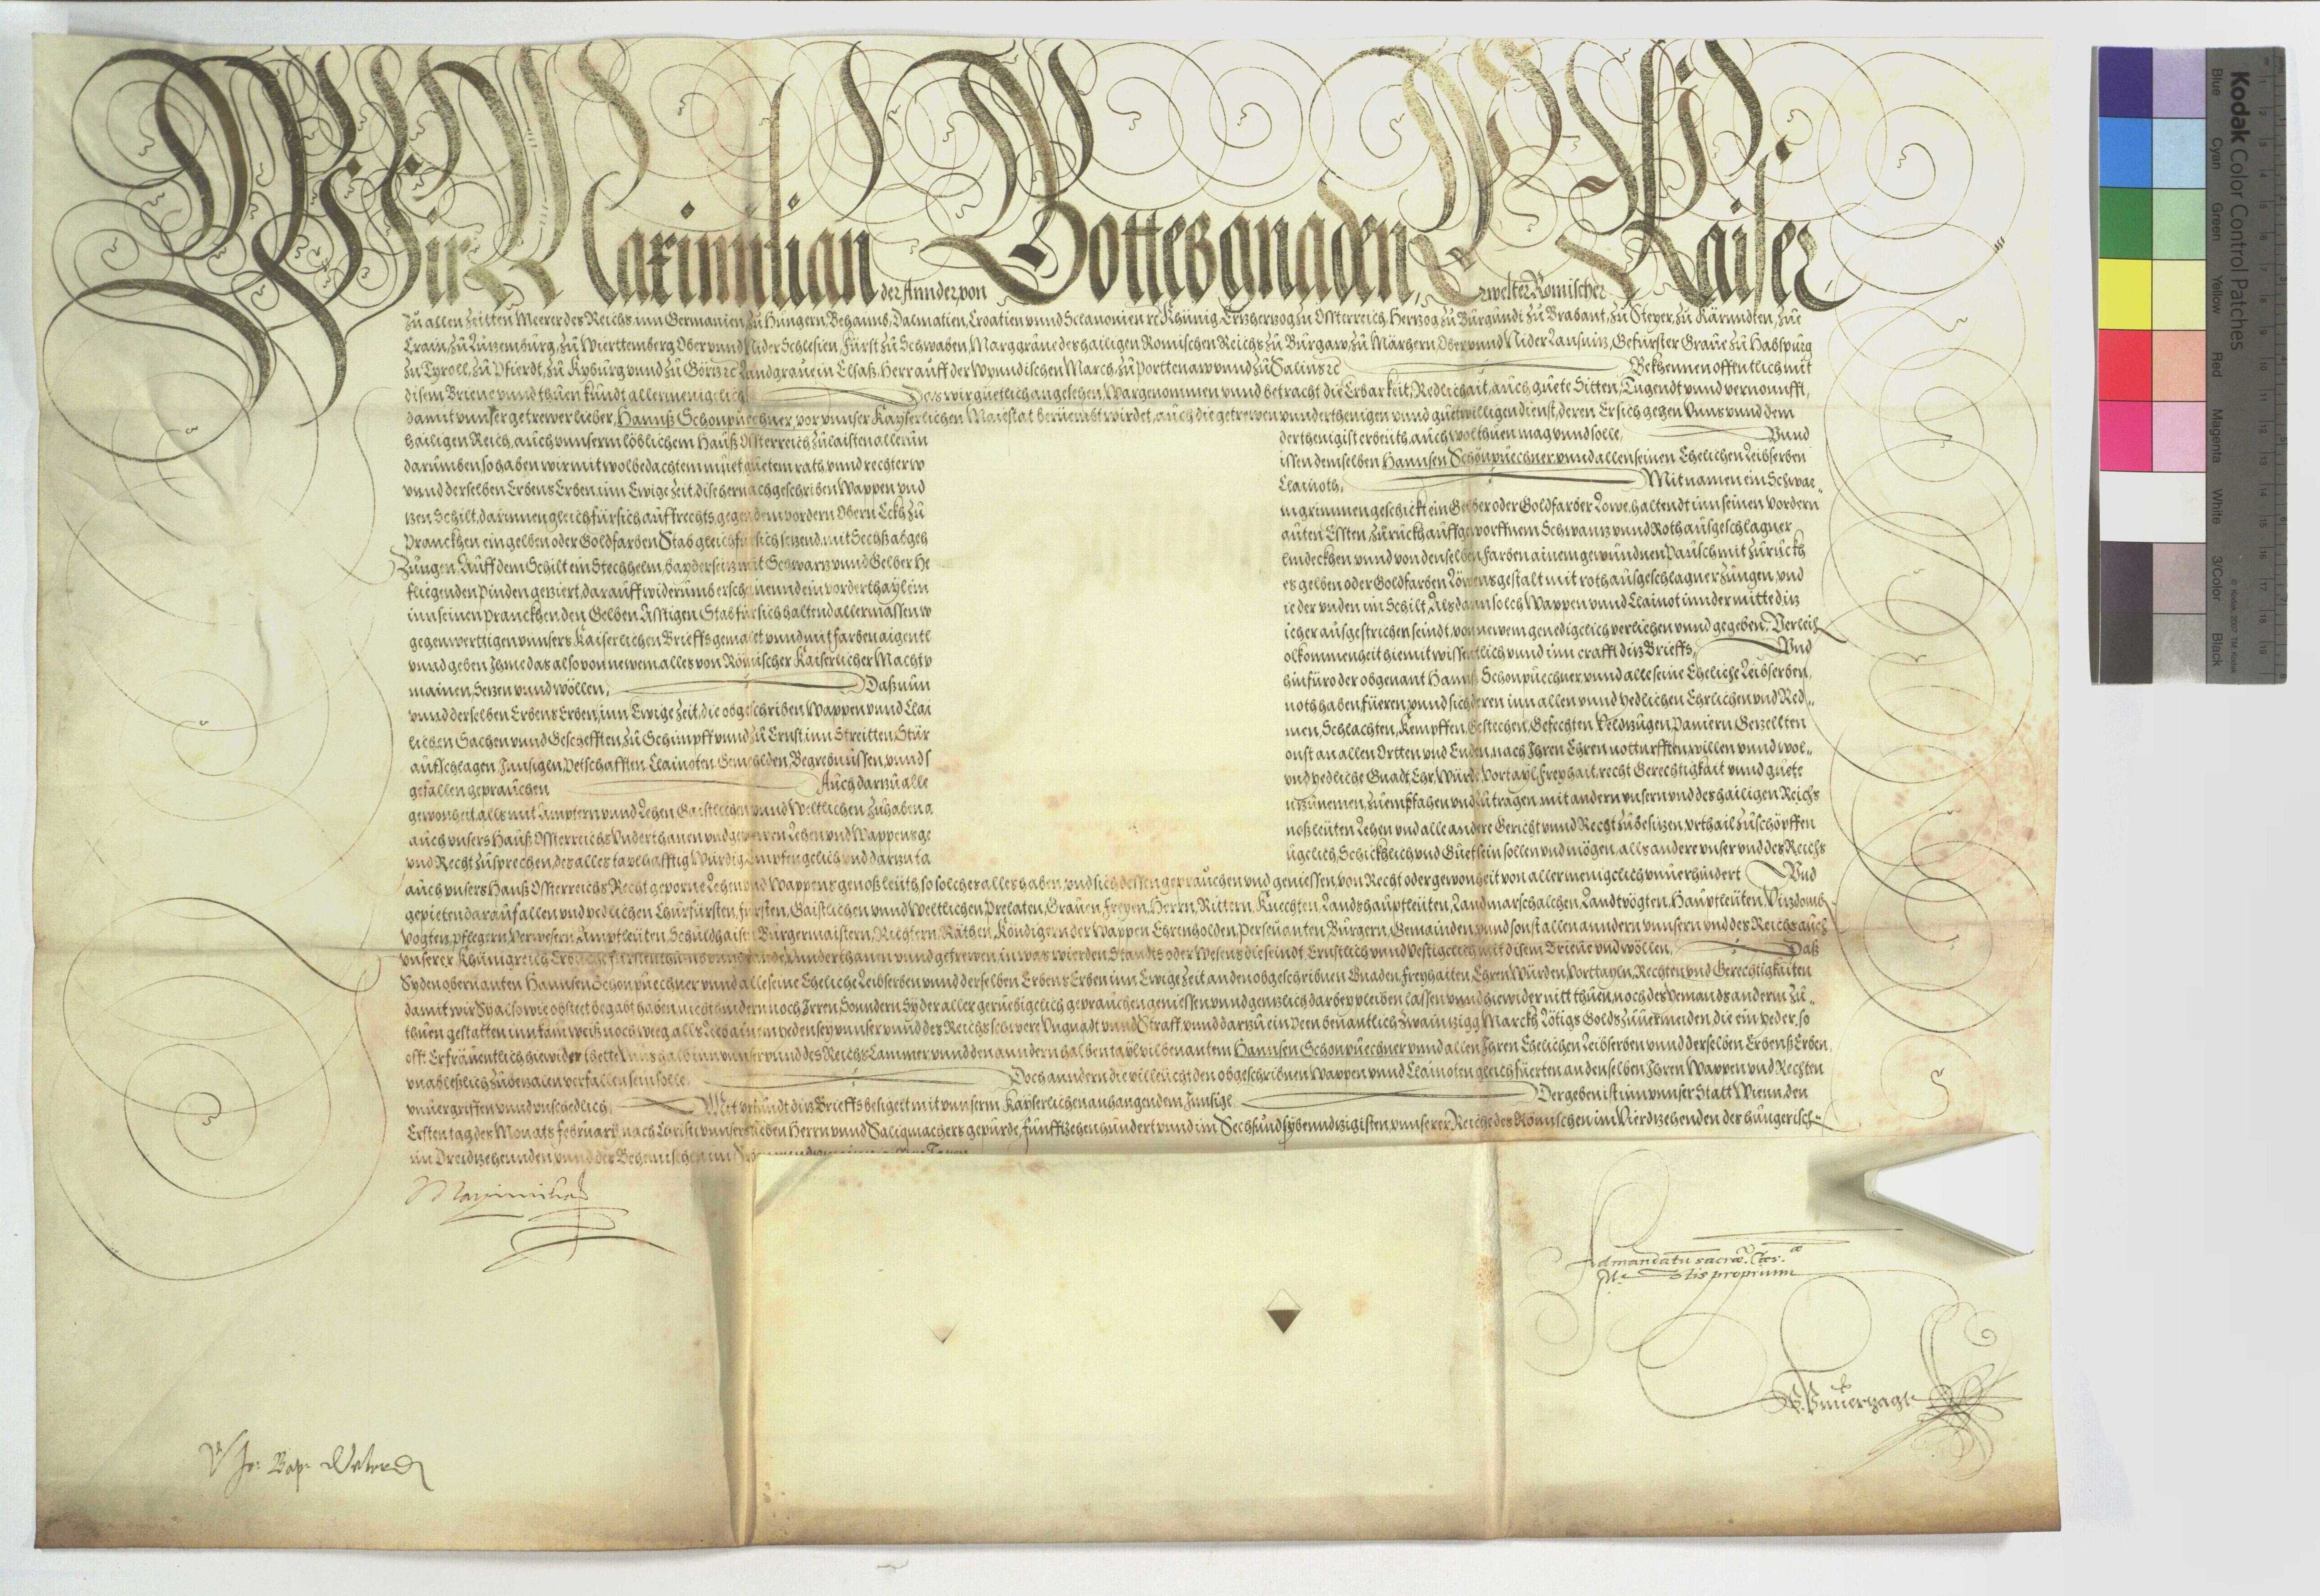 Wir Maximilian der Ander von Gottes gnaden, Erwelter Römischer Kaiser
zu allen Zeitten Meerer des Reichs inn Germanien, zu Hungern, Behaimb, Dalmatien, Croatien vnnd Sclauonien ꝛc Khünig, Ertzhertzog zu Osterreich, Hertzog zu Burgundi zu Brabant, zu Steyer, zu Kärnndten, zue
Crain, zu Lützemburg, zu Wierttemberg Ober vnnd Nider Schlesien, Fürst zu Schwaben, Marggraue des hailigen Römischen Reichs zu Burgaw, zu Märhern, Ober vnnd Nider Lausnitz, Gefürster Graue zu Habspurg
zu Tyroll, zu Pfierdt, zu Kyburg vnnd zu Görtz ꝛc Landgraue in Elsaß, Herr auff der Wynndischen March, zu Porttenaw vnnd zu Salins ꝛc Bekhennen offentlich mit
disem Brieue vnnd thuen kundt allermenigelich, Das wir guetlich angesehen, Wargenommen vnnd betracht die Erbarkeit, Redlichait, auch guete Sitten, Tugendt vnnd vernounfft,
damit vnnser getrewer lieber, Hannß Schonpuechner, vor vnnser Kayserlichen Maiestat berüembt wirdet, auch die getrewen vnnderthenigen vnnd guetwilligen dienst, deren Er sich gegen Vnns vnnd dem
hailigen Reich, auch vnnserm löblichem Hauß Osterreich zulaisten aller vn
derthenigist erbeuth, auch wol thuen mag vnnd solle, Vnnd
darumben so haben wir mit wolbedachtem muet guetem rath vnnd rechter w
issen demselben Hannsen Schonpuechner vnnd allen seinen Ehelichen Leibserben
vnnd derselben Erbens Erben, inn Ewige Zeit, dise hernachgeschriben Wappen vnd
Clainoth, Mit namen ein Schwar„
tzen Schilt, darinnen gleich für sich auffrechts gegen dem vordern Obern Eckh zu
m grimmen geschickt ein Gelber oder Goldfarber Lowe, haltendt inn seinen vordern
Pranckhen ein gelben oder Goldfarben Stab gleich für sich setzend, mit Sechß abgeh
auten Essten, zuruckh auffgeworffnem Schwantz vnnd Roth ausgeschlagner
Zungen. Auff dem Schilt ein Stechhelm, bayderseitz mit Schwartz vnnd Gelber He
lmdeckhen vnnd von denselben Farben ainem gewundnen Pausch mit zuruckh
fliegenden Pinden geziert, darauff widerumb erscheinennd ein vorderthayl ein
es gelben oder Goldfarben Löwens gestalt mit roth ausgeschlagner Zungen, vnd
inn seinen Pranckhen den Gelben Asstigen Stab für sich haltend aller massen w
ie der vnden im Schilt, Als dann solch Wappen vnnd Clainot inn der mitte ditz
gegenwerttigen vnnsers Kaiserlichen Brieffs gemalet vnnd mit farben aigentl
icher ausgestrichen seindt, von newem genedigelich verlichen vnnd gegeben. Verleih
vnnd geben Jhme das also von newem alles von Römischer Kaiserlicher Macht v
olkommenheit hiemit wissentlich vnnd inn crafft ditz Brieffs, Vnd
mainen, Setzen vnnd wöllen, Daß nun
hinfüro der obgenant Hannß Schonpuechner vnnd alle seine Eheliche Leibserben,
vnnd derselben Erbens Erben, inn Ewige Zeit, die obgeschriben Wappen vnnd Clai
noth haben, füeren, vnnd sich deren inn allen vnnd yedlichen Ehrlichen vnd Red„
lichen Sachen vnnd Geschefften, zu Schimpff vnnd zu Ernst, inn Streitten, Stür
men, Schlachten, Kempffen, Gestechen, Gefechten, Veldzügen, Paniern Getzellten
aufschlagen, Jnnsigen, Petschafften, Clainoten, Gemehlden, Begrebnussen, vnnd s
onst an allen Ortten vnd Enden, nach Jhren Ehren notturfften, willen vnnd wol„
gefallen geprauchen Auch dartzu alle
vnd yedliche Gnadt, Ehr, Würde, Vortayl, Freyhait, recht Gerechtigkait vnnd guete
gewonheit, alls mit Ämptern vnnd Lehen Gaistlichen vnnd Weltlichen zuhaben a
ntzunemen, zuempfahen vnd zu tragen, mit andern vnsern vnd des hailigen Reichs
auch vnsers Hauß Osterreichs Vnderthanen vnd gebornen Lehen vnd Wappens ge
noßleuten Lehen vnd alle andere Gericht vnnd Recht zubesitzen, vrthail zuschöpffen
vnd Recht zusprechen, des alles taylhafftig Würdig Empfengelich vnd dartzu ta
ugelich, Schicklich vnd Guet sein sollen vnd mögen, alls andere vnser vnd des Reichs
auch vnsers Hauß Osterreichs Recht geporne Lehen vnd Wappens genoßleuth, so solches alles haben, vnd sich dessen geprauchen vnd geniessen, von Recht oder gewonheit von allermenigelich vnuerhindert Vnd
gepieten darauf allen vnd yedlichen Churfürsten, Fürsten, Gaistlichen vnnd Weltlichen, Prelaten, Grauen, Freyen, Herrn, Rittern, Knechten, Landshauptleuten, Landmarschalchen, Landtvögten, Hauptleuten, Vitzdomb,
Vögten, Pflegern, Verwesern, Amptleuten, Schuldhaissen Burgermaistern, Richtern, Räthen, Köndigern der Wappen Ehrenholden, Perseuanten Burgern, Gemainden, vnnd sonst allen anndern vnnsern vnd des Reichs auch
vnserer Khunigreich Vnnderthanen vnnd getrewen, in was wierden, Standts oder Wesens die seindt, Ernstlich vnnd Vestigelich mit disem Brieue vnd wöllen, Daß
Sy den obgenanten Hannsen Schonpuechner vnnd alle seine Eheliche Leibserben vnnd derselben Erbens Erben inn Ewige Zeit an den obgeschribnen Gnaden, Freyhaiten, Ehren Würden, Vorttayln, Rechten vnd Gerechtigkaiten
damit wir Sy also wie obsteet begabt haben nicht hindern noch Jrren, Sonndern Sy der aller gerubiglich geprauchen geniessen vnnd genntzlich darbey pleiben lassen vnnd hiewider nitt thuen, noch des Yemands anderm zu„
thuen gestatten inn kain weiß noch weeg alls Lieb ainem yeden sey vnnser vnnd des Reichs schwere Vngnadt vnnd Straff vnnd dartzu ein Peen benantlich Zwaintzigg Marckh Lötigs Golds zuuermeiden, die ein yeder, so
offt Er fräuentlich hiewider thette Vnns halb inn vnnser vnnd des Reichs Cammer vnnd den anndern halben tayl vilbenantem Hannsen Schonpuechner vnnd allen Jhren Ehelichen Leibserben vnnd derselben Erbenß Erben,
vnableßlich zubezalen verfallen sein solle. Doch anndern die villeucht den obgeschribnen Wappen vnnd Clainoten gleich füerten an denselben Jhren Wappen vnd Rechten
vnuergriffen vnnd vnschedlich, Mit vrkundt ditz Brieffs besigelt mit vnnserm Kayserlichen anhangendem Jnnsigl, Der geben ist inn vnnser Statt Wienn, den
Ersten tag des Monats Februarij nach Christi vnnsers lieben Herrn vnnd Saligmachers gepurde, Funfftzehenhundert vnnd im Sechsundsybenndtzigisten, vnnserer Reiche des Römischen im Vierdtzehenden des Hungerisch„
im Dreidtzehennden, vnnd des Behemischen im
Maximilian
Ad mandatum sacræ. Cæs.
Mtis proprium
Vt Jo: Bap: Weber D
P. Vnuerzagt
Kodak Color Control Patches
Blue Cyan Green Yellow Red Magenta White 3/Color Black